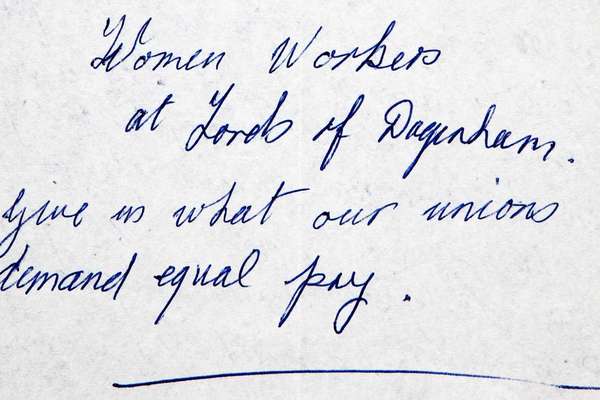 Women Workers
at Fords of Dagenham.
Give us what our unions
demand equal pay.